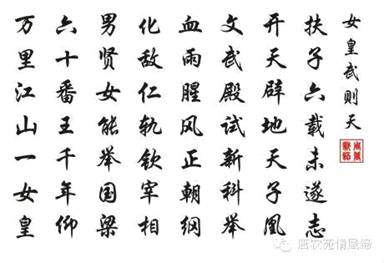 女皇武则天
扶子六载未遂志
开天辟地天子凰
文武殿试新科举
血雨腥风正朝纲
化敌仁轨钦宰相
男贤女能举国梁
六十番王千年仰
万里江山一女皇
唐农苑情凰缔